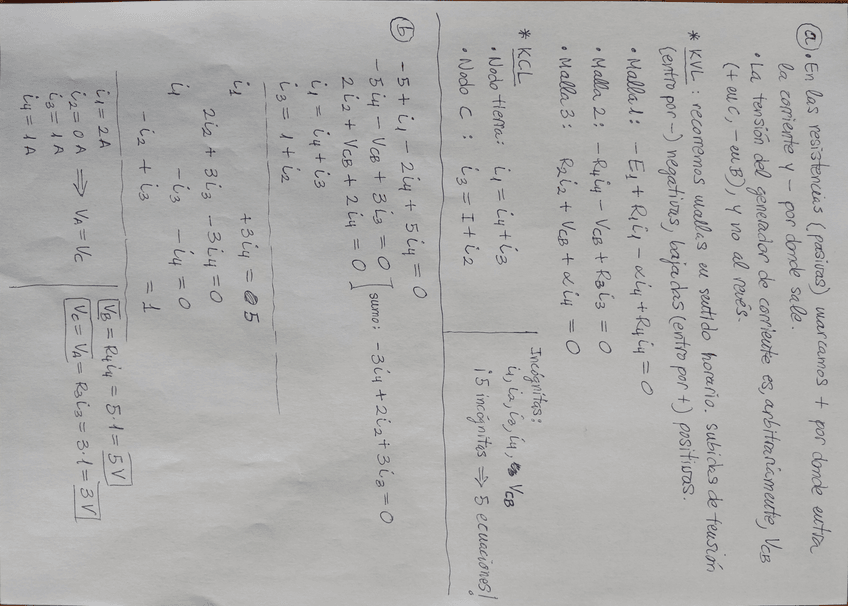 ⓐ • En las resistencias (pasivas) marcamos + por donde entra
la corriente y – por donde sale.
• La tensión del generador de corriente es, arbitrariamente, VCB
(+ en C, – en B), y no al revés.
* KVL: recorremos mallas en sentido horario. Subidas de tensión
(entro por –) negativas, bajadas (entro por +) positivas.
• Malla 1: -E1 + R1i1 - αi4 + R4i4 = 0
• Malla 2: -R4i4 - VCB + R3i3 = 0
• Malla 3: R2i2 + VCB + αi4 = 0
* KCL
• Nodo tierra: i1 = i4 + i3
• Nodo C: i3 = I + i2
Incógnitas:
i1, i2, i3, i4, VCB
¡5 incógnitas ⇒ 5 ecuaciones!
ⓑ -5 + i1 - 2i4 + 5i4 = 0
-5i4 - VCB + 3i3 = 0
2i2 + VCB + 2i4 = 0
sumo: -3i4 + 2i2 + 3i3 = 0
i1 = i4 + i3
i3 = 1 + i2
i1 + 3i4 = 5
2i2 + 3i3 - 3i4 = 0
i1 - i3 - i4 = 0
-i2 + i3 = 1
i1 = 2A
i2 = 0A ⇒ VA = VC
i3 = 1A
i4 = 1A
VB = R4i4 = 5·1 = 5V
VC = VA = R3i3 = 3·1 = 3V